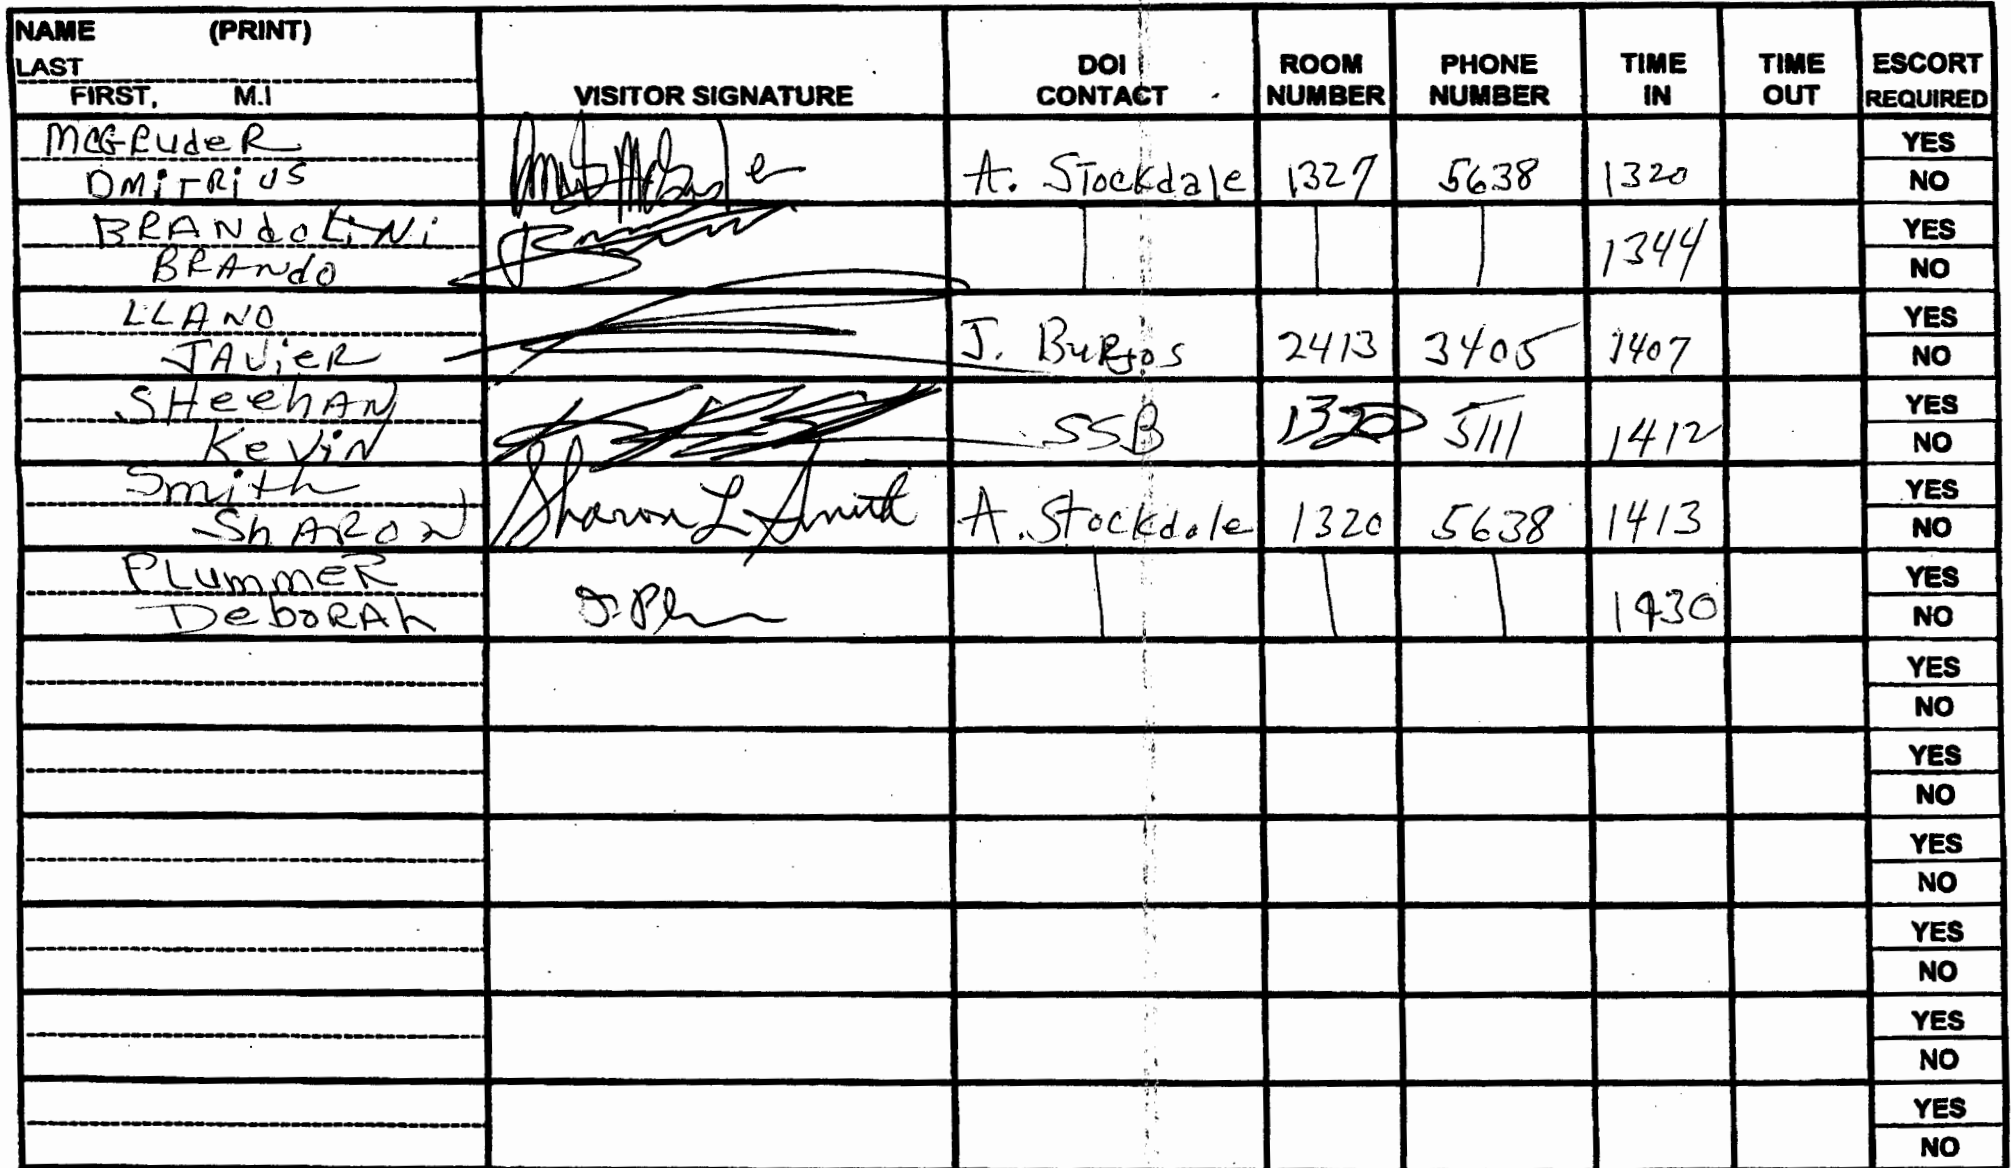 NAME (PRINT)
LAST
FIRST, M.I
VISITOR SIGNATURE
DOI CONTACT
ROOM NUMBER
PHONE NUMBER
TIME IN
TIME OUT
ESCORT REQUIRED
McGRudeR
DMiTRiUS
A. STockdale 1327 5638 1320
YES
NO
BRANdoLiNi
BRANdO
1344
YES
NO
LLANO
JAViER
J. BuRgos 2413 3405 1407
YES
NO
SHeehAN
KeViN
SSB 1320 5111 1412
YES
NO
Smith
ShARON
Sharon L Smith
A. Stockdale 1320 5638 1413
YES
NO
PLummeR
DeboRAh
1430
YES
NO
YES
NO
YES
NO
YES
NO
YES
NO
YES
NO
YES
NO